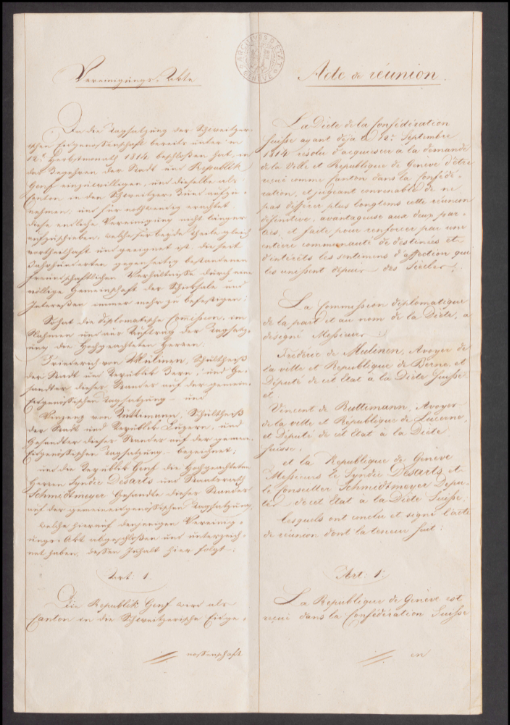 Vereinigungs-Akte
Da die Tagsatzung der Schweizeri-
schen Eidgenossenschaft bereits unter'm
12ⁿ Herbstmonath 1814 beschlossen hat, in
das Begehren der Stadt und Republik
Genf einzuwilligen, und dieselbe als
Canton in den Schweizer Bund aufzu-
nehmen, und für nothwendig erachtet
diese endliche Vereinigung nicht länger
aufzuschieben, welche für beyde Theile gleich
vortheilhaft und geeignet ist, die seit
Jahrhunderten gegenseitig bestandenen
freundschaftlichen Verhältnisse durch eine
völlige Gemeinschaft der Schicksale und
Interessen immer mehr zu befestigen;
die diplomatische Comission, im
Nahmen und aus Auftrag der Tagsatz-
ung die Hochgeachteten Herren
Friederich von Mülinen, Schultheiß
der Stadt und Republik Bern, und Ge-
sandter dieses Standes auf der gemein
Eidgenössischen Tagsatzung – und
Vinzenz von Rüttimann, Schultheiß
der Stadt und Republik Luzern, und
Gesandter dieses Standes auf der gemein
Eidgenössischen Tagsatzung, bezeichnet,
und die Republik Genf die Hochgeachteten
Herren Syndic Desarts und Staatsrath
Schmidtmeyer Gesandte dieses Standes
auf der gemeineidgenössischen Tagsatzung
welche hierauf denjenigen Vereinig-
ungs-Akt abgeschloßen und unterzeich-
net haben, dessen Inhalt hier folgt.
Art. 1.
Die Republik Genf wird als
Canton in die Schweizerische Eidge-
nossenschaft
Acte de réunion.
La Diète de la Confédération
Suisse ayant déja le 12. Septembre
1814 résolu d'acquiescer à la demande
de la Ville et République de Genève d'être
réuni comme Canton dans la Confédé-
ration, et jugeant convenable de ne
pas différer plus longtems cette réunion
définitive, avantageuse aux deux par-
ties, et faite pour renforcer par une
entière communauté de destinées et
d'intérêts les sentimens d'affection qui
les unissent depuis des Siècles;
La Commission diplomatique
de la part et au nom de la Diète, a
désigné Messieurs
Fréderic de Mulinen, Avoyer de
la ville et République de Berne et
Député de cet Etat à la Diète Suisse
et
Vincent de Ruttimann, Avoyer
de la ville et République de Lucerne,
et Député de cet Etat à la Diète
Suisse.
et la République de Genève
Messieurs le Syndic Desarts, et
le Conseiller Schmidtmeyer Depu-
tés de cet Etat à la Diète Suisse
Lesquels ont conclu et signé l'acte
de réunion dont la teneur suit:
Art: 1.
La République de Genève est
réuni dans la Confédération Suisse
en